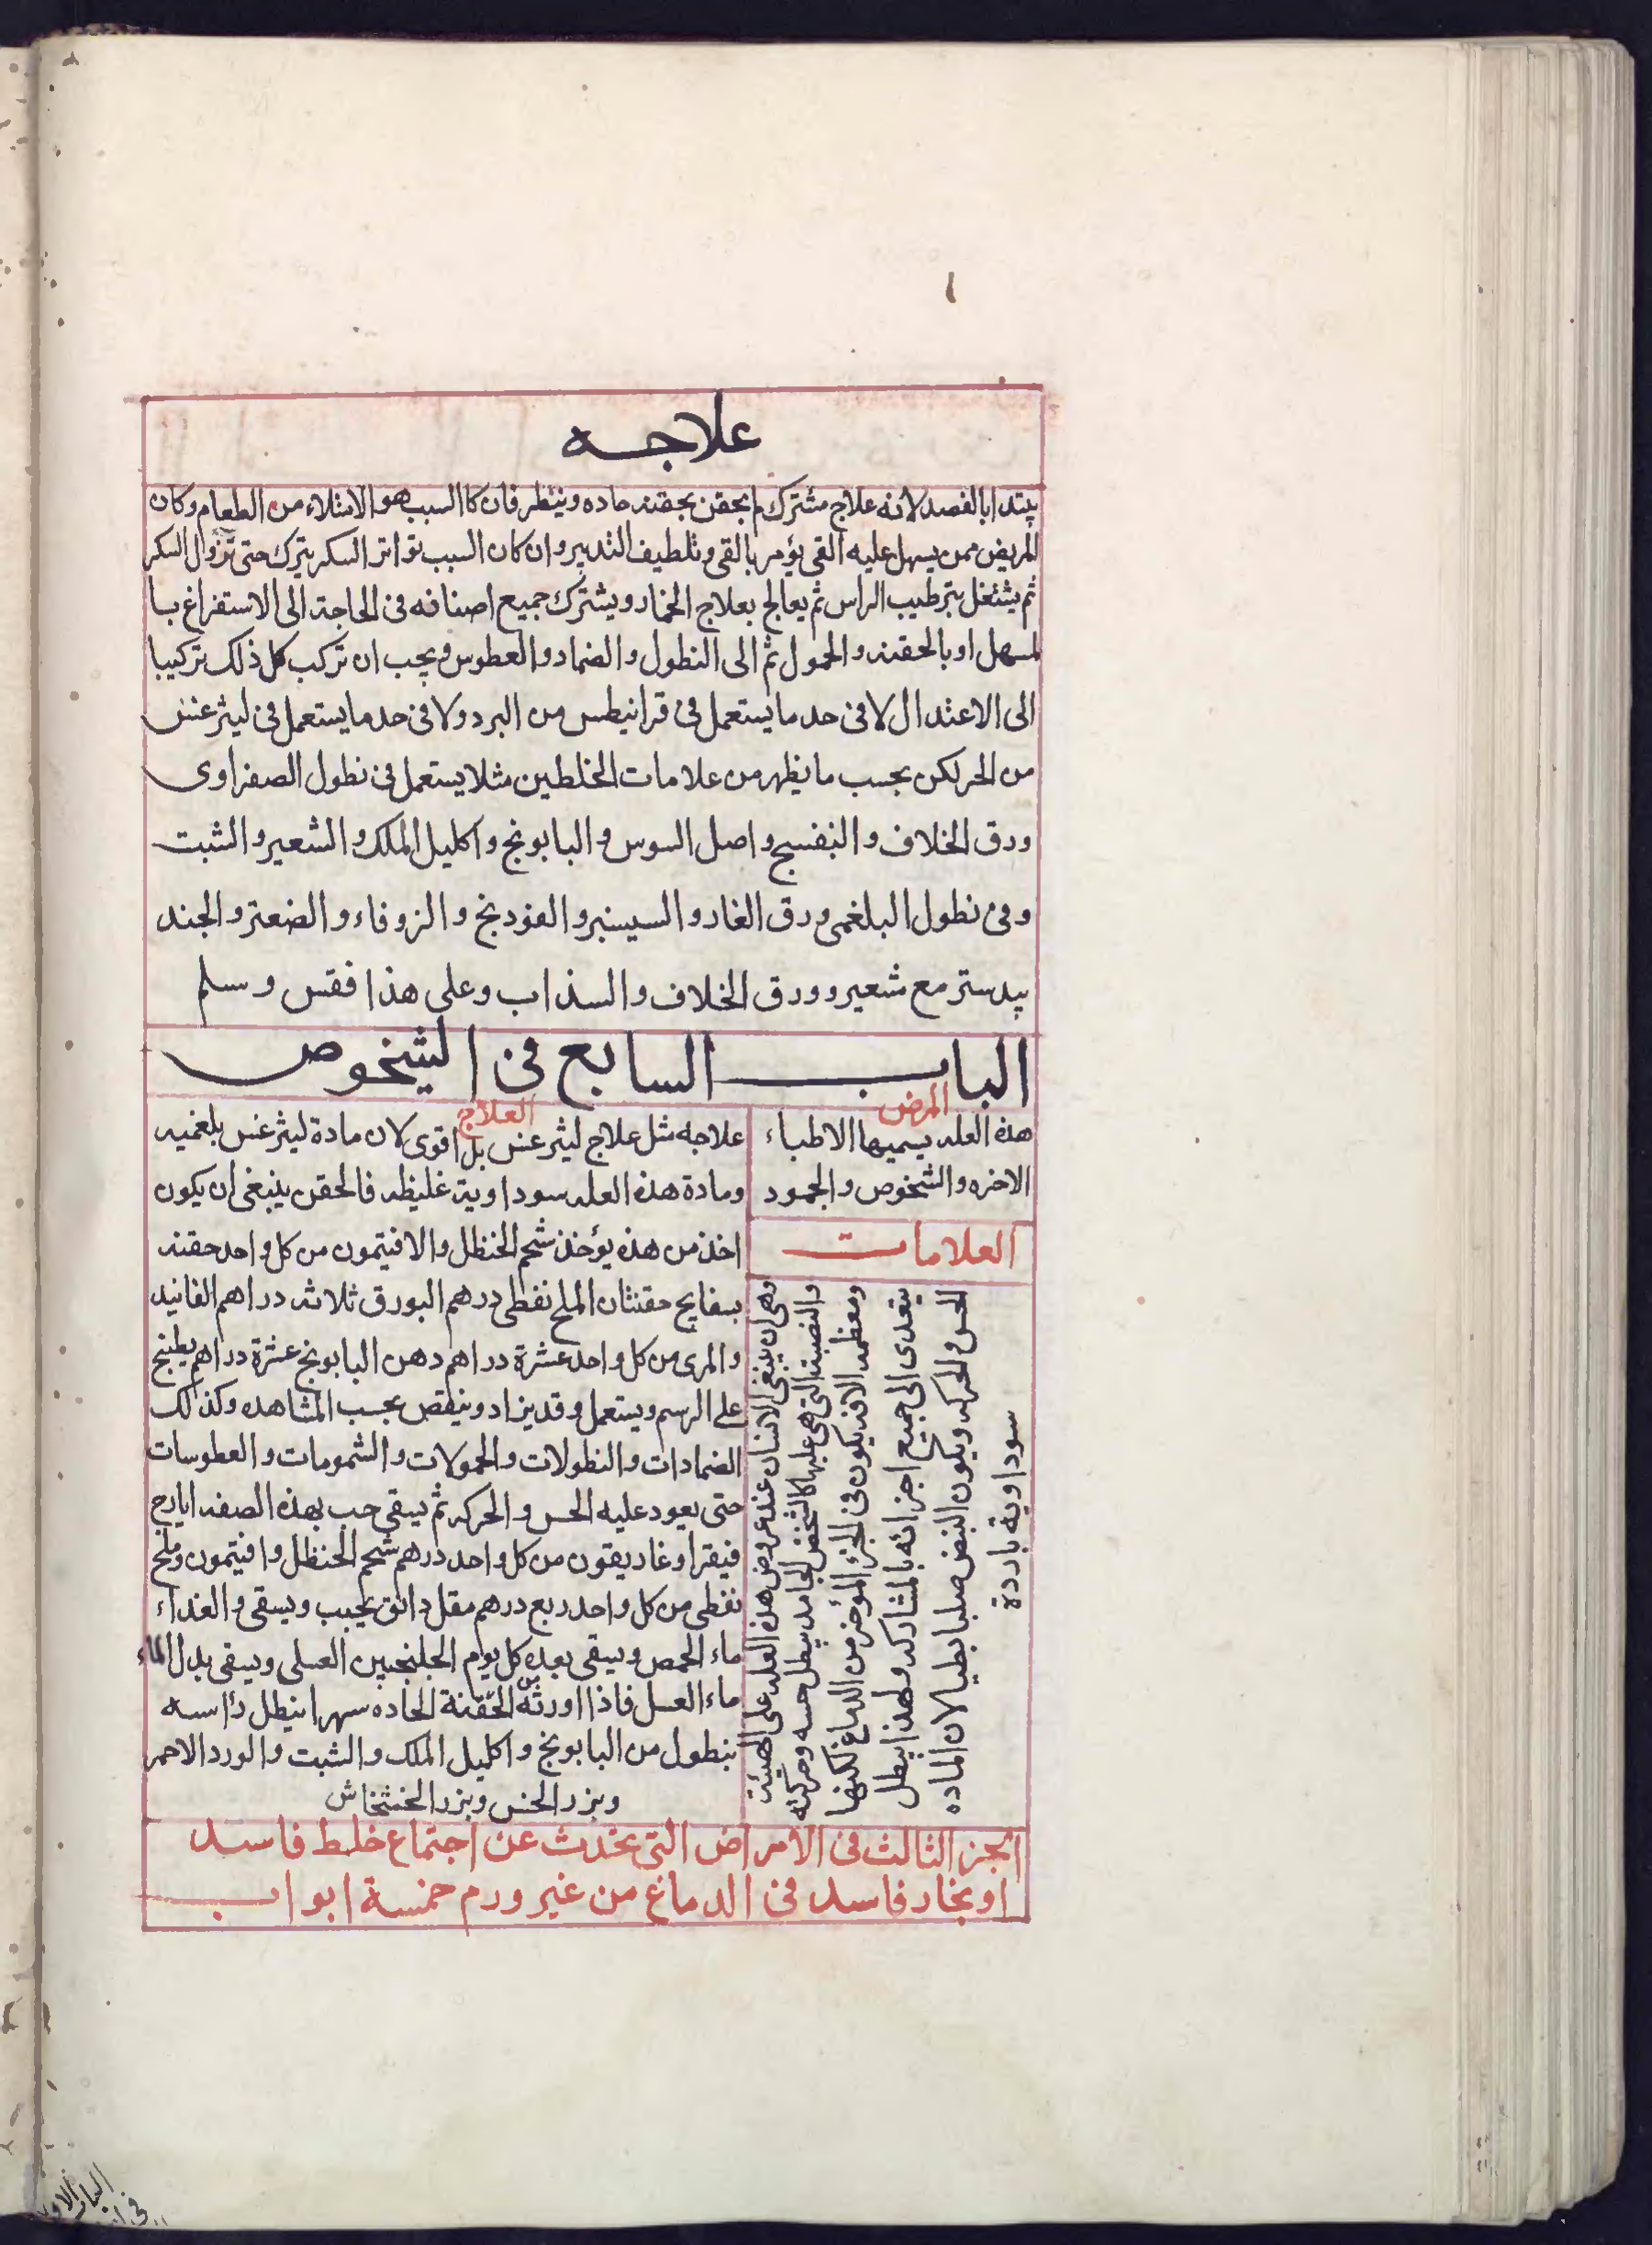 علاجـه
يبتدا بالفصد لانه علاج مشترك ثم بحقن بحقنه حاده وينظر فان كا السبب هو الامتلاء من الطعام وكان
المريض ممن يسهل عليه القي يؤمر بالقي وتلطيف التدبير وان كان السبب تواتر السكر يترك حتى تزول السكر
ثم يشتغل بترطيب الراس ثم يعالج بعلاج الخمار ويشترك جميع اصنافه فى الحاجة الى الاستفراغ با
لمسهل او بالحقنه والحمول ثم الى النطول والضماد والعطوس ويجب ان تركب كل ذلك تركيبا
الى الاعتدال لا فى حد ما يستعمل فى قرانيطس من البرد ولا فى حد ما يستعمل فى ليثرغنس
من الحر لكن بحسب ما يظهر من علامات الخلطين مثلا يستعمل فى نطول الصفراوى
ورق الخلاف والبنفسج واصل السوس والبابونج واكليل الملك والشعير والشبت
وفى نطول البلغمى ورق الغار والسيسنبر والفودنج والزوفاء والصعتر والجند
بيدستر مع شعير وورق الخلاف والسذاب وعلى هذا فقس وسلم
الباب السابع فى الشخوص
المرض
هذه العله يسميها الاطباء
الاخذه والشخوص والجمود
العلامات
وهى ان يبقى الانسان عند عروض هذه العله على الهيئة
والنصبة التى هى عليها كالشخص الجامد يبطل حسه وحركته
ومعظم الافه يكون فى الجزء المؤخر من الدماغ لكنها
يتعدى الى جميع اجزائه بالمشاركه ولهذا يبطل
الحس والحركه ويكون النبض صلبا بطيا لان الماده
سوداوية باردة
العلاج
علاجه مثل علاج ليثرغنس بل اقوى لان مادة ليثرغنس بلغميه
ومادة هذه العله سوداوية غليظه فالحقن ينبغى ان يكون
احد من هذه يؤخذ شحم الحنظل والافتيمون من كل واحد حقنه
بسفايج حقنتان الملح نفطى درهم البورق ثلاثه دراهم الفانيد
والمرى من كل واحد عشرة دراهم دهن البابونج عشرة دراهم يطبخ
على الرسم ويستعمل وقد يزاد وينقص بحسب المشاهده وكذلك
الضمادات والنطولات والحمولات والشمومات والعطوسات
حتى يعود عليه الحس والحركه ثم يسقى حب بهذه الصفه ايارج
فيقرا وغاريقون من كل واحد درهم شحم الحنظل وافتيمون وملح
نفطى من كل واحد ربع درهم مقل دانق يحبب ويسقى والغداء
ماء الحمص ويسقى بعده كل يوم الجلنجبين العسلى ويسقى بدل الماء
ماء العسل فاذا اورثه الحقنة الحاده سهرا ينطل راسه
بنطول من البابونج واكليل الملك والشبت والورد الاحمر
وبزر الخس وبزر الخشخاش
الجزء الثالث فى الامراض التى يحدث عن اجتماع خلط فاسد
او بخار فاسد فى الدماغ من غير ورم خمسة ابواب